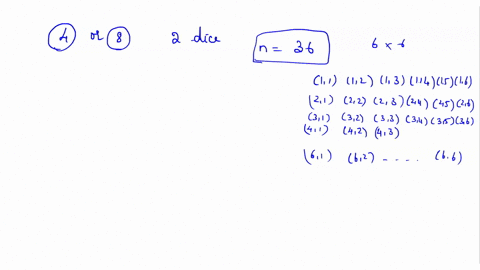 4 or 8 2 dice n = 36 6 × 6
(1,1) (1,2) (1,3) (1,4) (1,5) (1,6)
(2,1) (2,2) (2,3) (2,4) (2,5) (2,6)
(3,1) (3,2) (3,3) (3,4) (3,5) (3,6)
(4,1) (4,2) (4,3)
(6,1) (6,2) - - . . . . (6,6)